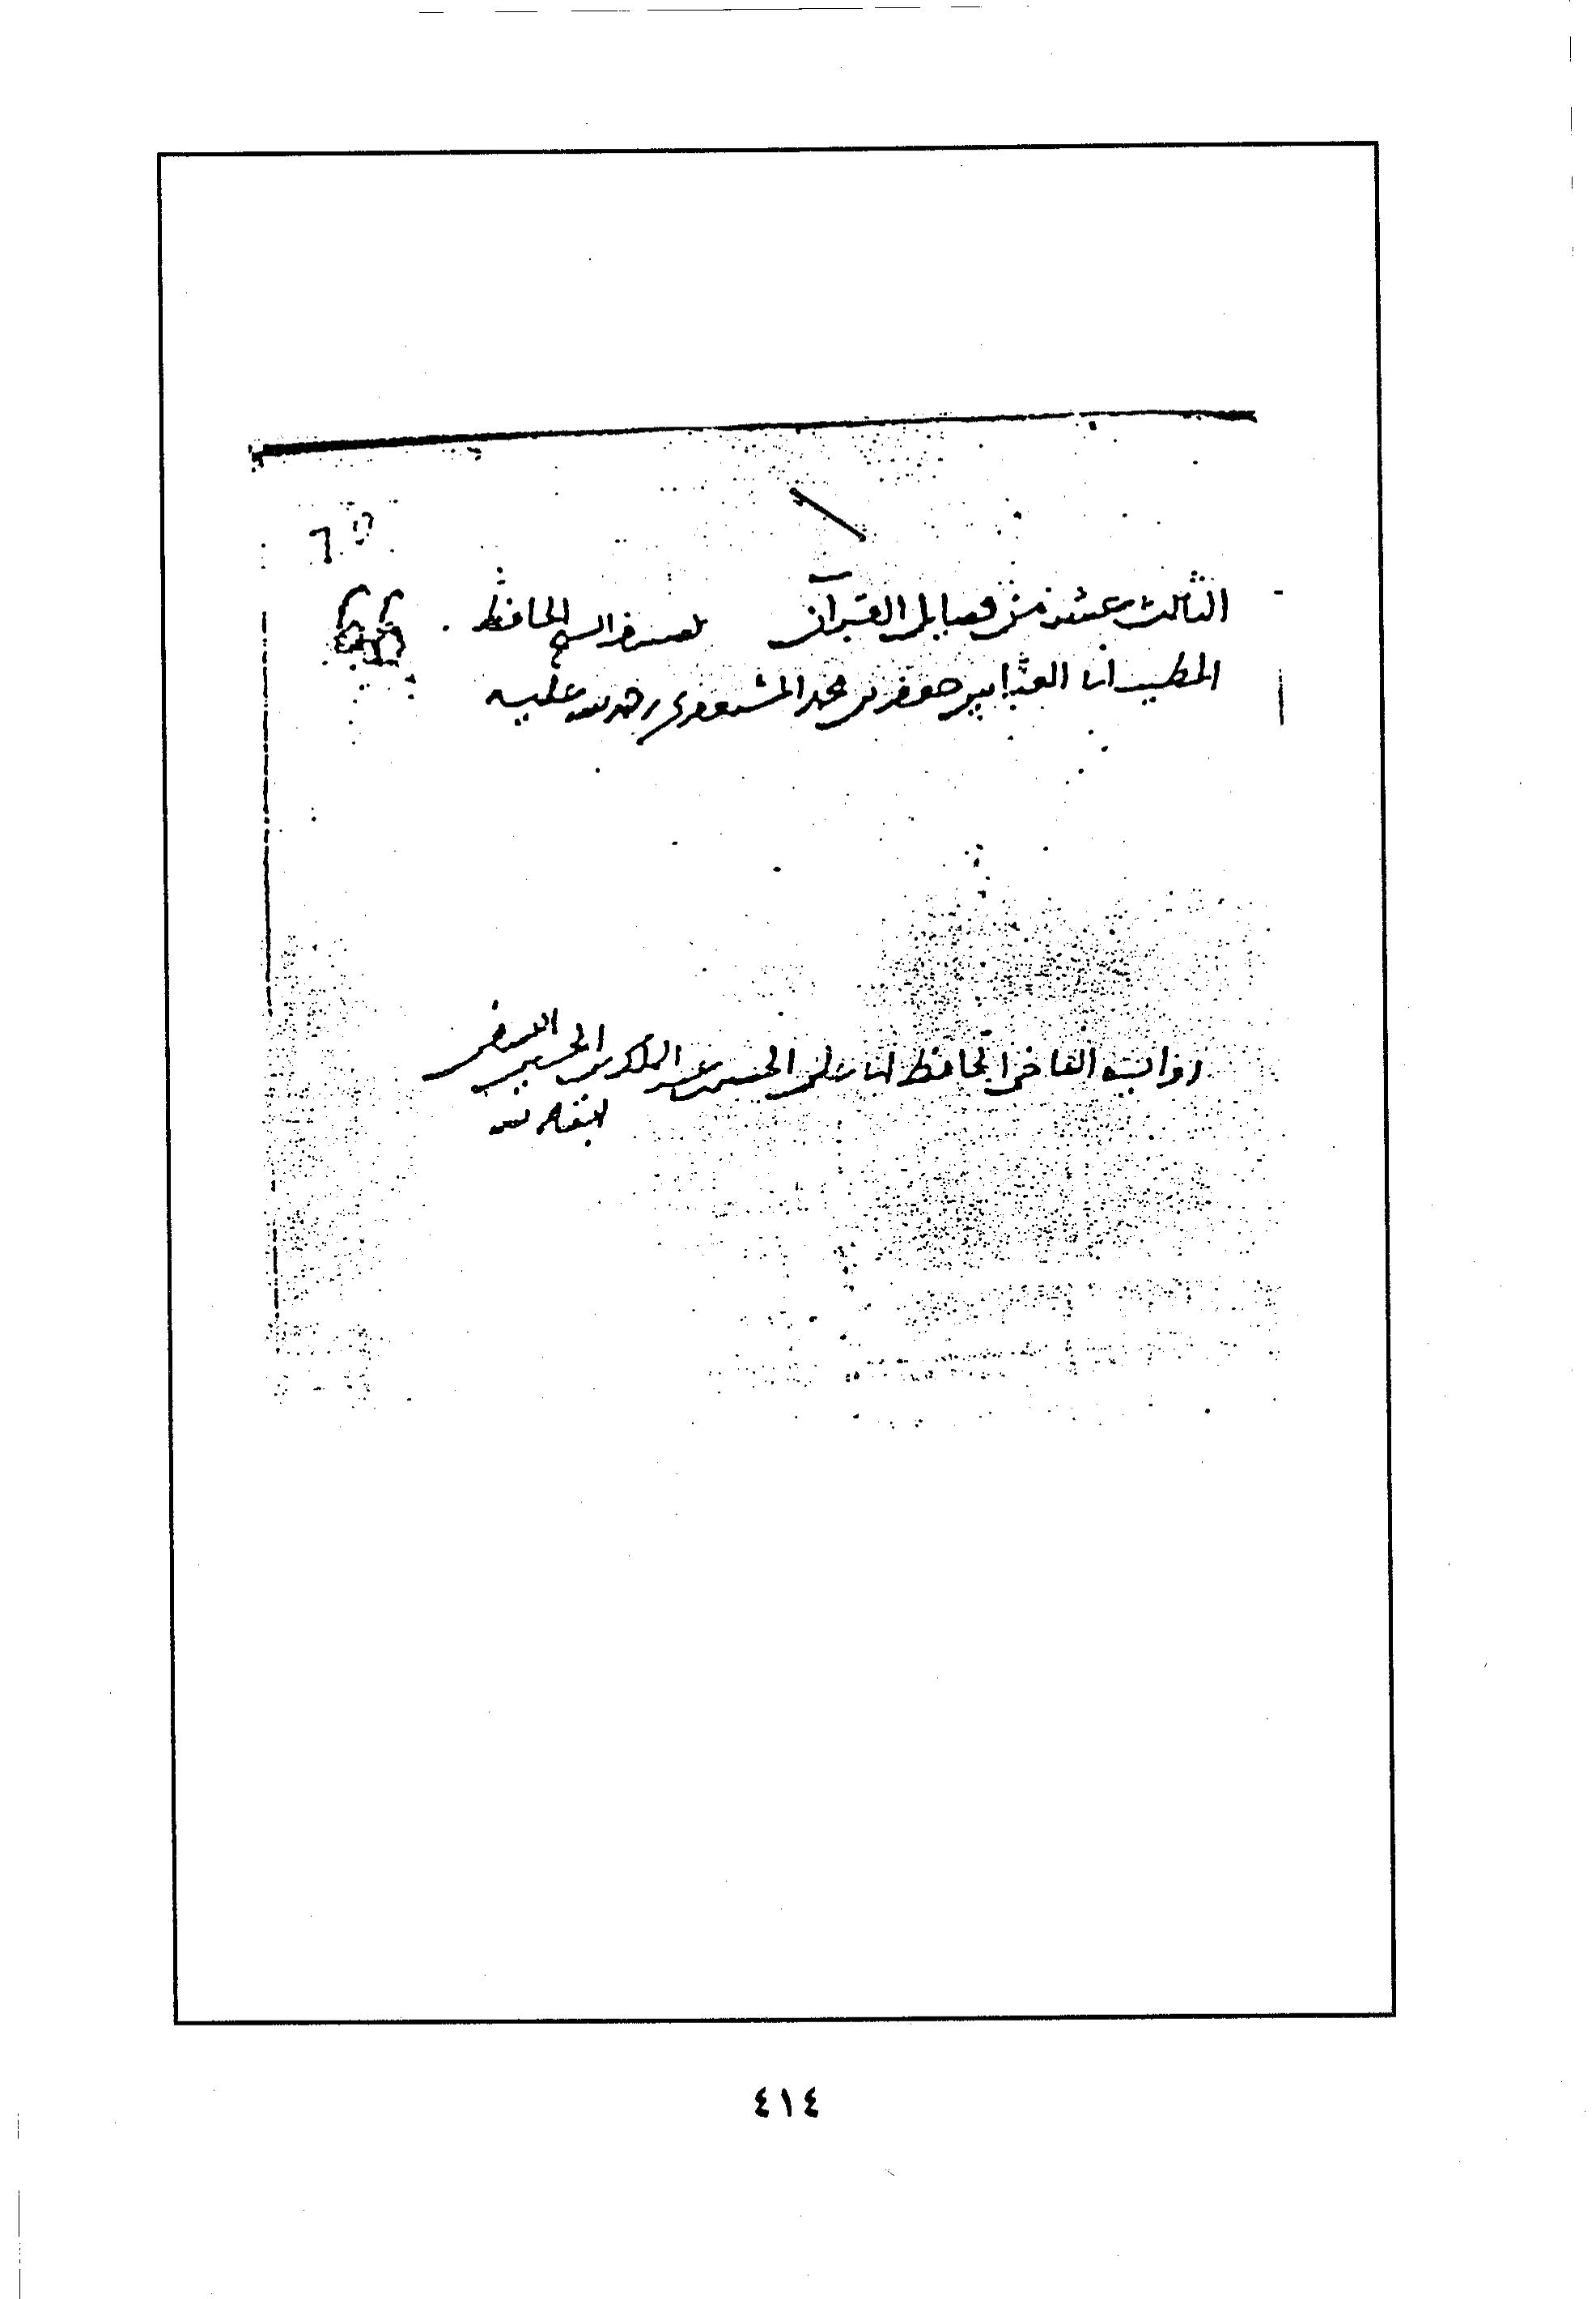 الثالث عشر من فضايل القرآن تصنيف الشيخ الحافظ
الخطيب ابى العباس جعفر بن محمد المستغفرى رحمه الله عليه
رواية القاضى الحافظ ابى على الحسن بن عبد الملك بن الحسين النسفى
٤١٤